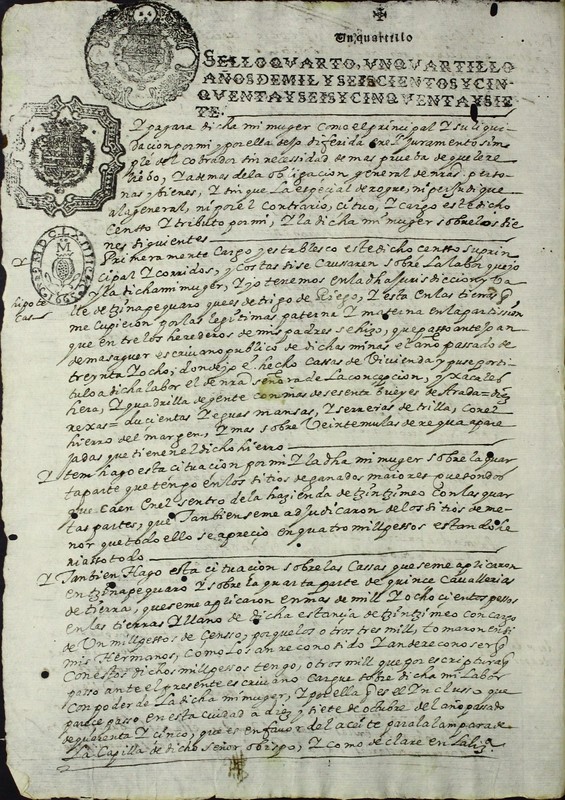 Un quartillo
SELLO QVARTO, VN QVARTILLO
AÑOS DE MIL Y SEISCIENTOS Y CIN
QVENTA Y SEIS Y CINQVENTA Y SIE
TE.
Y pagara dicha mi muger como el principal Y su liqui
dacion por mi y por ella dejo diferida en el Juramento sim
ple del cobrador sin necesidad de mas prueba de que le re
liebo, Y ademas de la obligacion general de nras perso
nas y bienes, Y sin que la especial derogue, ni perjudique
a la general, ni por el contrario, cituo, Y cargo este dicho
Censso Y tributo por mi, Y la dicha mi muger sobre los bie
nes siguientes
Y Primeramente Cargo y establesco este dicho censso su prin
cipal Y corridos, y costas si se caussaren sobre la labor que yo
hipote
cas
Y la dicha mi muger, Y yo tenemos en la dha Jurisdiccion y Va
lle de tzinapequaro que es de trigo de Riego, Y esta en las tierras q
me cupieron por las legitimas paterna Y materna en la partission
que entre los herederos de mis padres se hizo, que passo ante Joan
de masaguer escriuano publico de dichas minas el año passado de
treynta Y ocho; donde yo e hecho Cassas de Vivienda y puse por ti
tulo a dicha labor el de nra señora de La concepcion, y xacales
hera, Y quadrilla de gente con mas de sesenta bueyes de Arada = diez
rexas = ducientas Yeguas mansas, Y serreras de trilla, con el
hierro del margen, Y mas sobre Veinte mulas de requa apare
jadas que tienen el dicho hierro
Y tem hago esta cituacion por mi Y la dha mi muger sobre la quar
ta parte que tengo en los sitios de ganados maiores que son dos
que Caen en el sentro de la hazienda de tzintzimeo con las quar
tas partes, que Tambien se me adjudicaron de los sitios de me
nor que todo ello se aprecio en quatro mill pessos estando he
riasso todo
Y Tambien Hago esta cituacion sobre las Cassas que se me aplicaron
en tzinapequaro Y sobre la quarta parte de quince Cauallerias
de tierra, que se me aplicaron en mas de mill Y ochocientos pessos
en las tierras Y llano de dicha estancia de tzintzimeo con cargo
de Un mill pessos de Censso, porque los otros tres mill, tomaron en si
mis Hermanos, como los an reconosido Y an de reconoser, y
Con estos dichos mill pessos tengo, otros mill que por escriptura q
passo ante el presente escriuano cargue sobre dicha mi labor
Con poder de La dicha mi muger, Y por ella q es el Yncluso que
parece passo en esta ciudad a diez y siete de otubre del año passado
de quarenta Y cinco, que es en fauor del aceite para la lampara de
La Capilla de dicho señor obispo, Y como de clare en la liza